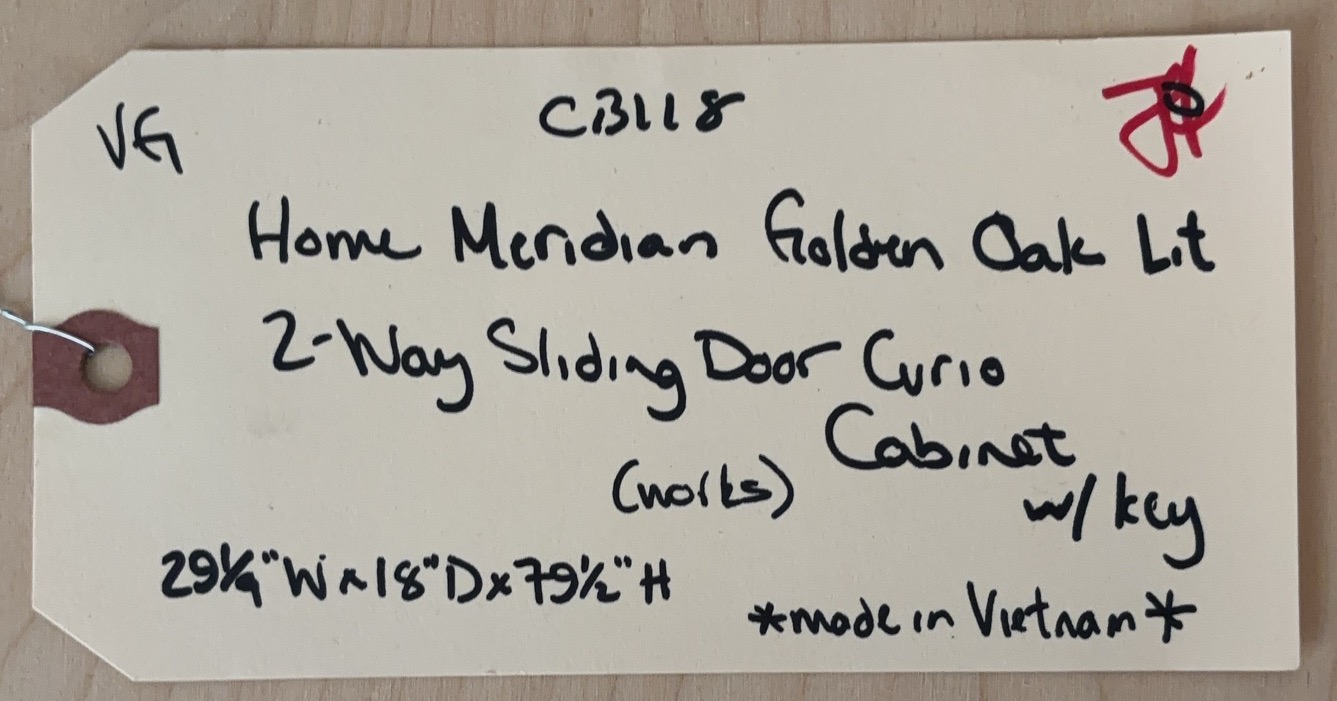 VG
CB118
Home Meridian Golden Oak Lit
2-Way Sliding Door Curio
Cabinet
(works)
w/ key
29¼"W x 18"D x 79½"H
*made in Vietnam*